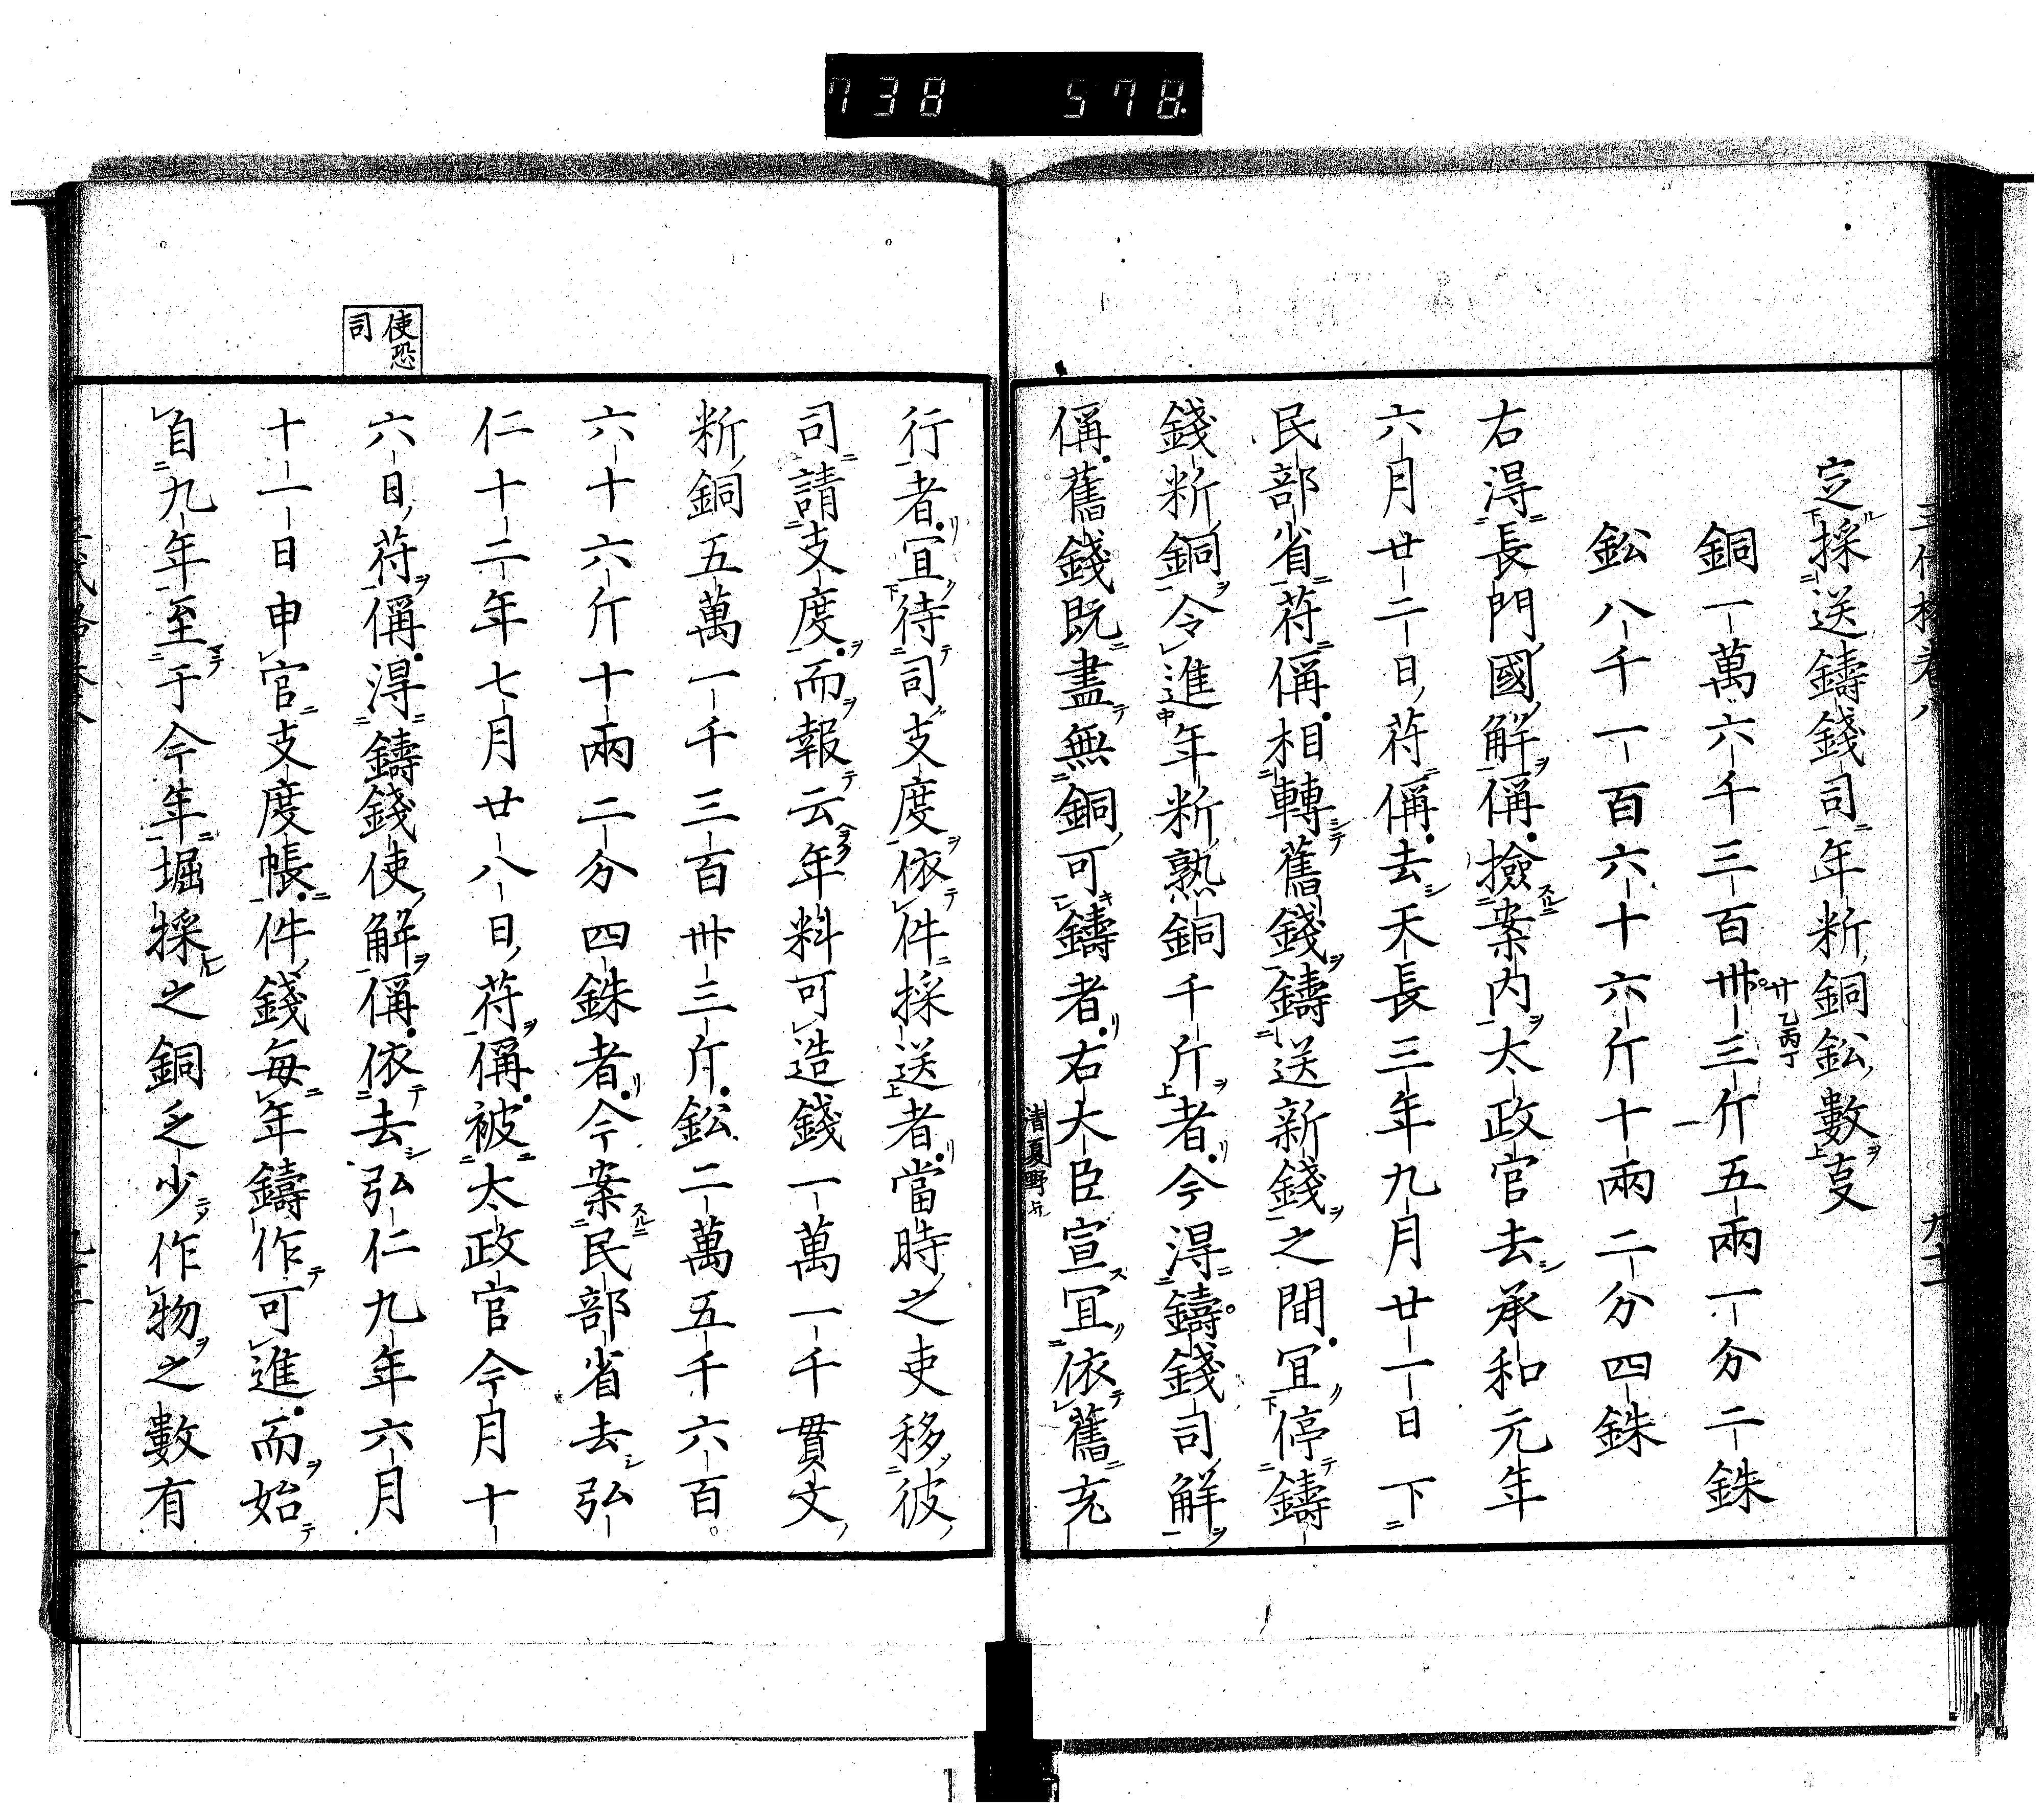 738 578
定採送鑄錢司年斷銅鈆數㕝
銅一萬六千三百卅三斤五兩一分二銖
廿乙丙丁
鈆八千一百六十六斤十兩二分四銖
右得長門國解偁撿案内太政官去承和元年
六月廿二日苻偁去天長三年九月廿一日下
民部省苻偁相轉舊錢鑄送新錢之間宜停鑄
錢斷銅令進年斷熟銅千斤者今得鑄錢司解
偁舊錢既盡無銅可鑄者右大臣宣宜依舊充
清夏野
行者宜待司支度依件採送者當時之吏移彼
司請支度而報云年料可造錢一萬一千貫文
斷銅五萬一千三百卅三斤鈆二萬五千六百
六十六斤十兩二分四銖者今案民部省去弘
仁十二年七月廿八日苻偁被太政官今月十
六日苻偁得鑄錢使解偁依去弘仁九年六月
使恐
司
十一日申官支度帳件錢每年鑄作可進而始
自九年至于今年堀採之銅乏少作物之數有